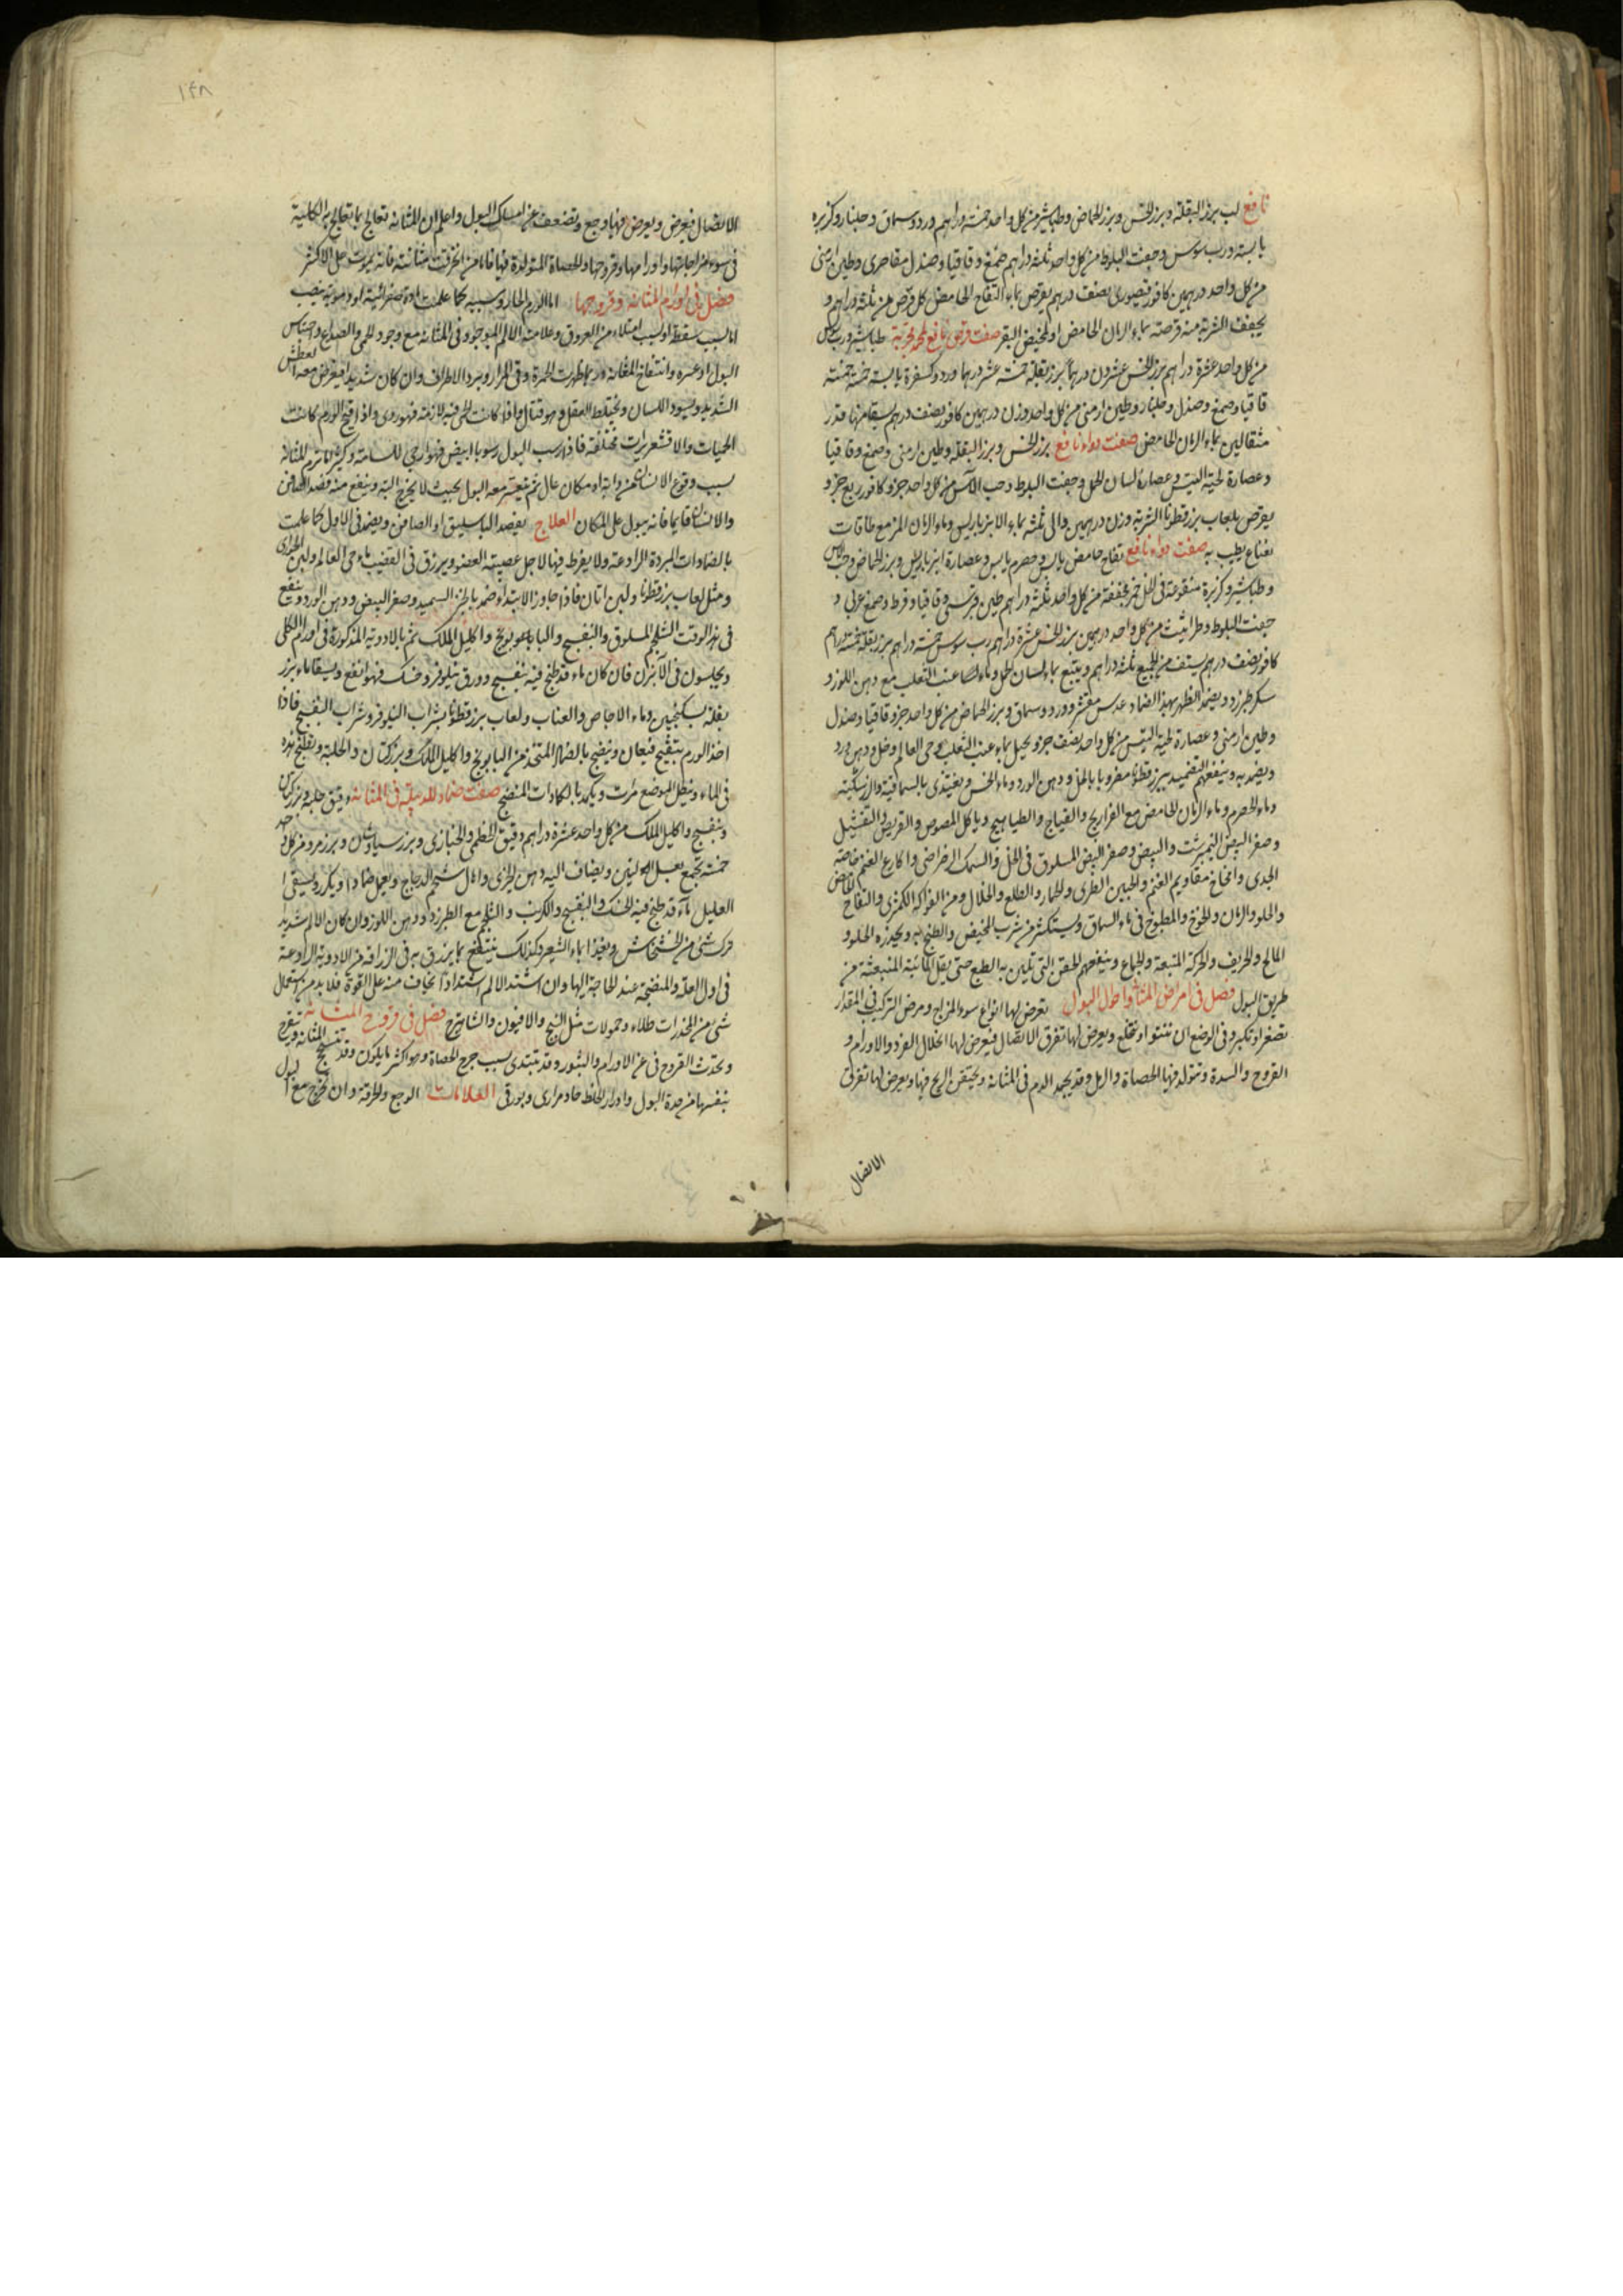 نافع لب بزر البقلة وبزر الخس وبزر الحماض وطباشير من كل واحد خمسة دراهم ورد وسماق وجلنار وكزبره
يابسة ورب سوس وجفت البلوط من كل واحد ثلثة دراهم صمغ وقاقيا وصندل مقاصرى وطين ارمنى
من كل واحد درهمين كافور قيصورى نصف درهم يقرص بماء التفاح الحامض كل قرص من ثلثة دراهم و
يجفف الشربة منه قرصة بماء الرمان الحامض او مخيض البقر صفت قرص نافع لهم مجربة طباشير ورب سوس
من كل واحد عشرة دراهم بزر الخس عشرون درهما بزر بقلة خمسة عشر درهما ورد وكسفرة يابسة خمسة خمسة
قاقيا وصمغ وصندل وجلنار وطين ارمنى من كل واحد وزن درهمين كافور نصف درهم يسقا منها قدر
مثقالين بماء الرمان الحامض صفت دواء نافع بزر الخس وبزر البقلة وطين ارمنى وصمغ وقاقيا
وعصارة لحية التيس وعصارة لسان الحمل وجفت البلوط وحب الآس من كل واحد جزو كافور ربع جزو
يقرص بلعاب بزر قطونا الشربة وزن درهمين والى ثلثة بماء الانبرباريس وماء الرمان المز مع طاقات
نعناع يطيب به صفت دواء نافع تفاح حامض يابس وحصرم يابس وعصارة انبرباريس وبزر الحماض وحب الآس
وطباشير وكزبرة منقوعة فى الخل خمر مجففة من كل واحد ثلثة دراهم طين قبرسى وقاقيا وقرط وصمغ عربى و
جفت البلوط وطراثيث من كل واحد درهمين بزر الخس عشرة دراهم رب سوس خمسة دراهم بزر بقلة خمسة دراهم
كافور نصف درهم يستف من الجميع ثلثة دراهم ويتبع بماء لسان الحمل وماء عنب الثعلب مع دهن اللوز و
سكر طبرزد ويضمد الظهر بهذا الضماد عدس مقشر وورد وسماق وبزر الحماض من كل واحد جزو قاقيا وصندل
وطين ارمنى وعصارة لحية التيس من كل واحد نصف جزو يحبل بماء عنب الثعلب وحى العالم وخل ودهن ورد
ويضمد به وينفعهم التضميد ببزر قطونا مضروبا بالخل ودهن الورد وماء الخس ويغتذى بالسماقية والزرشكية
وماء الحصرم وماء الرمان الحامض مع الفراريج والقباج والطياهيج وياكل المصوص والقريص
وصفر البيض النيمبرشت والبيض وصفر البيض المسلوق فى الخل والسمك الرضراضى واكارع الغنم خاصة
الجدى وامخاخ مقاديم الغنم والجبن الطرى والجمار والطلع والخلال ومن الفواكه الكمثرى والتفاح الحامض
والحلو والرمان والخوخ والمطبوخ فى ماء السماق ويستكثر من شرب المخيض والطبخ به ويحذره الحلو و
المالح والحريف والحركة المتعبة والجماع وينفعهم الحقن التى تلين به الطبع حتى يقل المائية المنبعثة من
طريق البول فصل فى امراض المثانة واحوال البول يعرض لها انواع سوء المزاج ومرض التركيب فى المقدار
تصغر او تكبر وفى الوضع ان تنتو او تنخلع ويعرض لها تفرق الاتصال فيعرض لها انحلال الفرد والاورام و
القروح والسدة وتتولد فيها الحصاة والرمل وقد يجمد الدم فى المثانة ويحتقن الريح فيها ويعرض لها تفرق
الاتصال
١٤٨
الاتصال فيعرض ويعرض فيها وجع وتضعف عن امساك البول واعلم ان المثانة تعالج بما تعالج به الكلية
فى سوء مزاجاتها واورامها وقروحها والحصاة المتولدة فيها فاما من انخرقت مثانته فانه يموت على الاكثر
فصل فى اورام المثانة وقروحها اما الورم الحار وسببه كما علمت مادة صفرائية او دموية ينصب
اما لسبب سقطة او لسبب امتلاء من العروق وعلامته الالم الموجود فى المثانة مع وجود الحمى والصداع واحتباس
البول او عسره وانتفاخ المثانة وربما ظهرت الحمرة وقى المرار وبرد الاطراف وان كان شديدا فيعرض معه العطش
الشديد ويسود اللسان ويختلط العقل وهو قتال واذا كانت الحمى فيه لازمة فهو ردى واذا قيح الورم كانت
الحميات والاقشعريرات مختلفة فاذا رسب البول رسوبا ابيض فهو ارجى للسلامة وكثيرا ما ترم المثانة
بسبب وقوع الانسان من دابة او مكان عال ثم يتعسر معه البول بحيث لا يخرج البتة وينفع منه فصد الصافن
والانسان قايما فانه يبول على المكان العلاج يفصد الباسليق او الصافن ويضمد فى الاول كما علمت
بالضمادات المبردة الرادعة ولا يفرط فيها لاجل عصبية العضو ويزرق فى القضيب ماء حى العالم ولبن الجوارى
ومثل لعاب بزر قطونا ولبن اتان فاذا جاوز الابتداء ضمد بالخبز السميد وصفر البيض ودهن الورد وينفع
فى هذا الوقت الشلجم المسلوق والبنفسج والبابونج واكليل الملك ثم بالادوية المذكورة فى اورام الكلى
ويجلسون فى الآبزن فان كان ماء قد طبخ فيه بنفسج وورق نيلوفر وخسك فهو انفع ويسقا ماء بزر
بقلة بسكنجبين وماء الاجاص والعناب ولعاب بزر قطونا بشراب النيلوفر وشراب البنفسج فاذا
اخذ الورم يتقيح فيعان وينضج بالضماد المتخذ من البابونج واكليل الملك وبزر كتان والحلبة ويطبخ هذه
فى الماء وينطل الموضع مرت ويكمد بالكمادات المنضج صفت ضماد للدبيلة فى المثانة دقيق حلبة وبزر كتان
وبنفسج واكليل الملك من كل واحد عشرة دراهم دقيق الخطمى والخبازى وبزر سياوشان وبزر مرو من كل واحد
خمسة تجمع بعسل التين ويضاف اليه دهن الخيرى وامال شحم الدجاج ويعمل ضمادا ويكرر ويسقى ا
العليل ماء قد طبخ فيه الخسك والبنفسج والكرنب والشلجم مع الطبرزد ودهن اللوز وان كان الالم شديد
فرك شئ من الخشخاش ويغذا بماء الشعير وكذلك ينتفع بما يزرق به فى الزراقة من الادوية الرادعة
فى اول العلة والمنضجة عند الحاجة اليها وان اشتد الالم اشتدادا يخاف منه على القوة فلا بد من استعمال
شئ من المخدرات طلاء وحمولات مثل البنج والافيون والشاهترج فصل فى قروح المثانة تتقرح المثانة
ويحدث القروح فى عن الاورام والبثور وقد يتبدى بسبب جرح الحصاة وهو اكثر ما يكون وقد تنسحج
بنفسها من حدة البول وادرار الخلط حاد مرارى وبورقى العلامات الوجع والحرقة وان يخرج مع البول